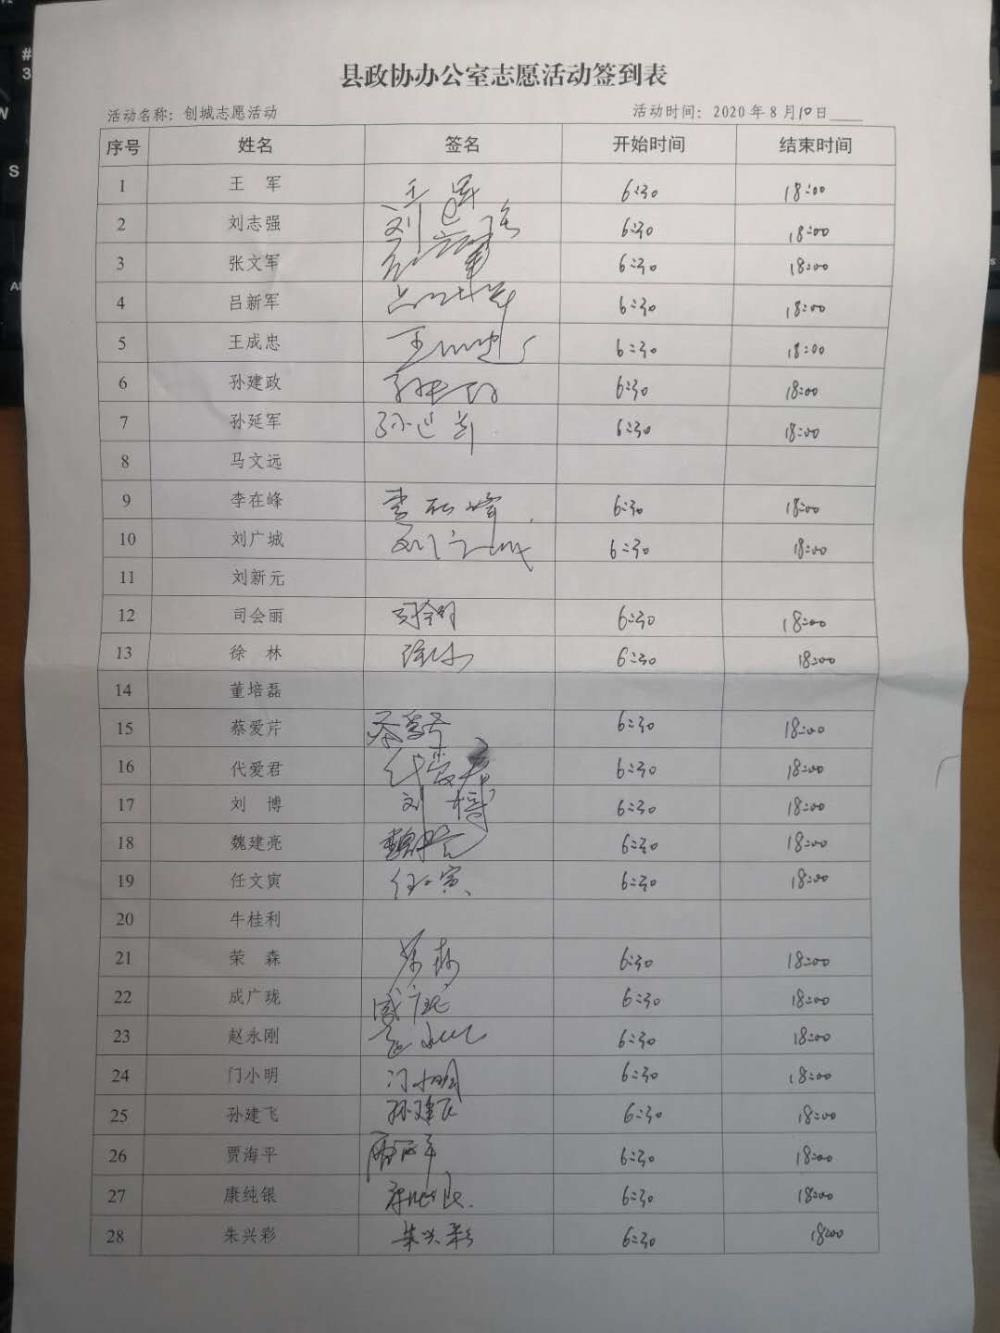 县政协办公室志愿活动签到表
活动名称：创城志愿活动 活动时间：2020年8月10日
序号 姓名 签名 开始时间 结束时间
1 王 军 王军 6:30 18:00
2 刘志强 刘志强 6:30 18:00
3 张文军 6:30 18:00
4 吕新军 6:30 18:00
5 王成忠 王成忠 6:30 18:00
6 孙建政 孙建政 6:30 18:00
7 孙延军 孙延军 6:30 18:00
8 马文远
9 李在峰 李在峰 6:30 18:00
10 刘广城 刘广城 6:30 18:00
11 刘新元
12 司会丽 司会丽 6:30 18:00
13 徐 林 徐林 6:30 18:00
14 董培磊
15 蔡爱芹 蔡爱芹 6:30 18:00
16 代爱君 代爱君 6:30 18:00
17 刘 博 刘博 6:30 18:00
18 魏建亮 魏建亮 6:30 18:00
19 任文寅 任文寅 6:30 18:00
20 牛桂利
21 荣 森 荣森 6:30 18:00
22 成广珑 成广珑 6:30 18:00
23 赵永刚 赵永刚 6:30 18:00
24 门小明 门小明 6:30 18:00
25 孙建飞 孙建飞 6:30 18:00
26 贾海平 贾海平 6:30 18:00
27 康纯银 康纯银 6:30 18:00
28 朱兴彩 朱兴彩 6:30 18:00